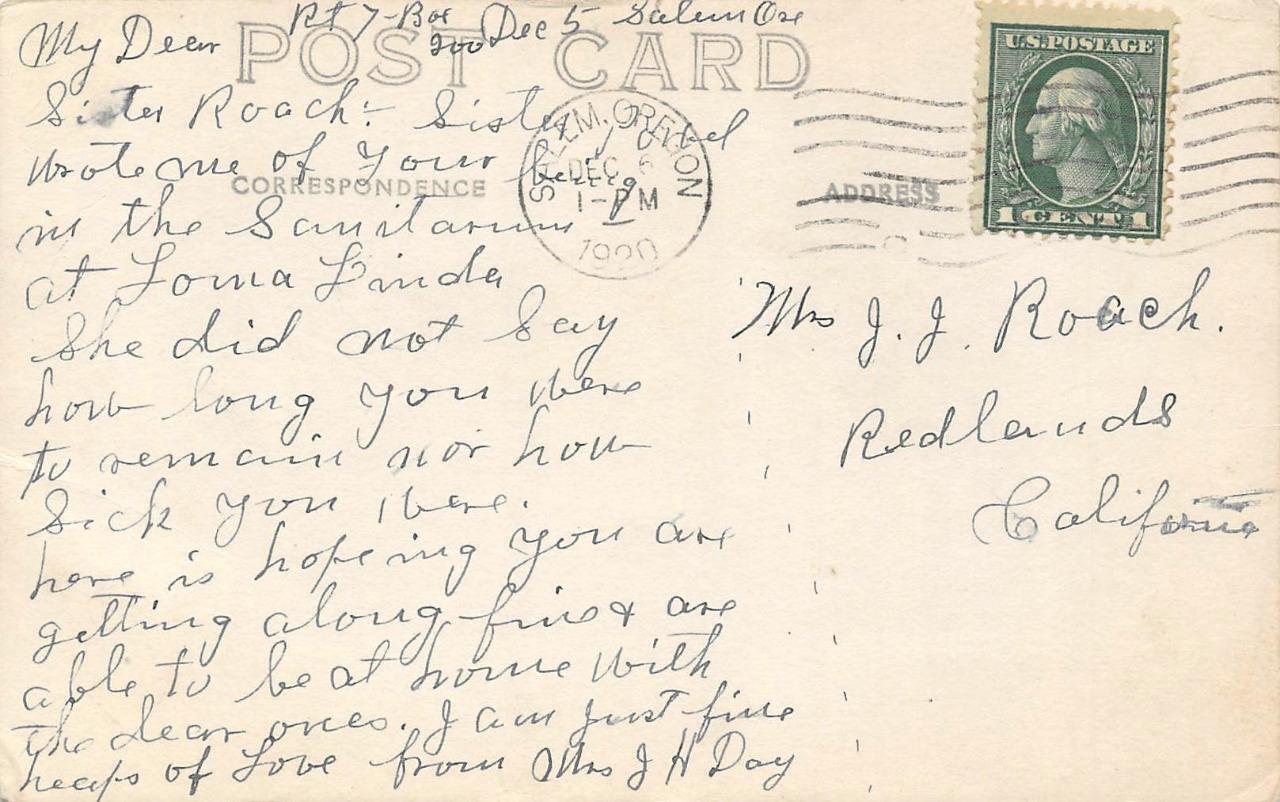 Rt 7-Box 200 Dec 5 Salem Ore
My Dear
POST CARD
Sister Roach:- Sister
wrote me of your being
in the Sanitarium
at Loma Linda
She did not say
how long you were
to remain nor how
sick you were.
here is hopeing you are
getting along fine & are
able to be at home with
the dear ones. I am just fine
heaps of Love from Mrs J H Day
CORRESPONDENCE
SALEM, OREGON
DEC 6
1-PM
1920
ADDRESS
U.S. POSTAGE
1 CENT 1
Mrs J. J. Roach.
Redlands
California